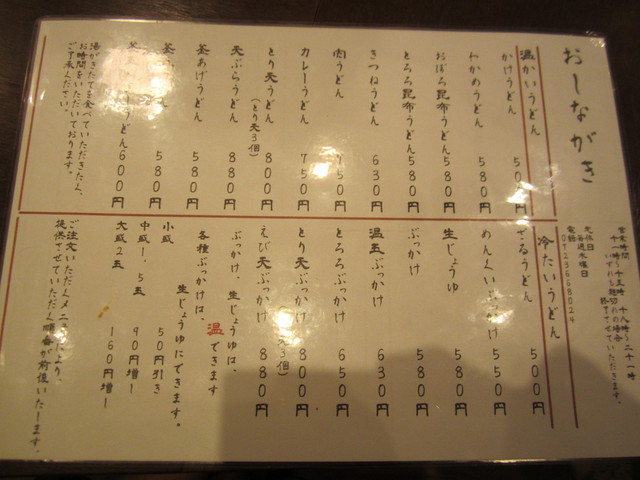 おしながき
営業時間
十一時～十五時　十八時～二十一時
いずれも麺切れの場合
終了させていただきます。
定休日
毎週水曜日
電話
温かいうどん
かけうどん
わかめうどん　５８０円
おぼろ昆布うどん　５８０円
とろろ昆布うどん　５８０円
きつねうどん　６３０円
肉うどん　７５０円
カレーうどん　７５０円
とり天うどん　８００円
（とり天３個）
天ぷらうどん　８８０円
釜あげうどん　５８０円
５８０円
うどん　６００円
湯がきたてを食べていただきたく、
お時間をいただいております。
ご了承ください。
冷たいうどん
ざるうどん　５００円
めんくい　５５０円
生じょうゆ　５８０円
ぶっかけ　５８０円
温玉ぶっかけ　６３０円
とろろぶっかけ　６５０円
とり天ぶっかけ　８００円
３個）
えび天ぶっかけ　８８０円
ぶっかけ、生じょうゆは、
温できます
各種ぶっかけは、
生じょうゆにできます。
小盛　５０円引き
中盛１．５玉　９０円増し
大盛２玉　１６０円増し
ご注文いただくメニューにより、
提供させていただく順番が前後いたします。